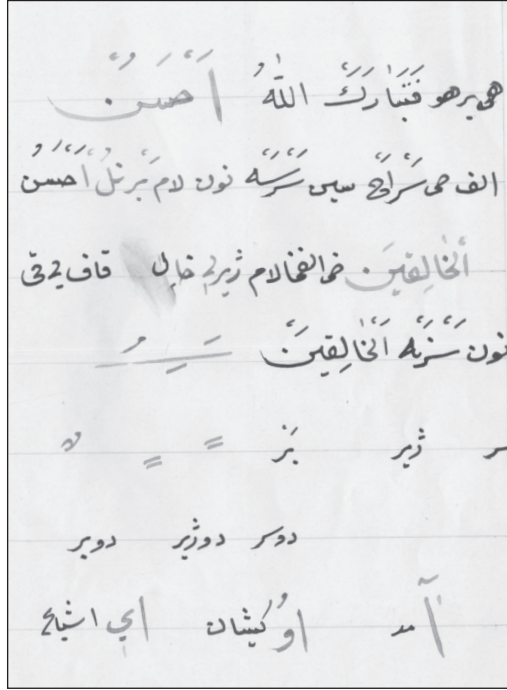 هی بر هو فَتَبَارَكَ اللهُ اَحسَنُ
الف حی سَرَاَح سین سَرَسَه نون لام بَر نلُ اَحسَنُ
اَلخَالِقینَ خی الفخا لام ژیرلِ خالِ قاف ی قی
نون سَرنَه اَلخَالِقینَ
سر ژیر بَر
دوسر دوژیر دوبر
آ مد اُو کیشان اِی اشباع